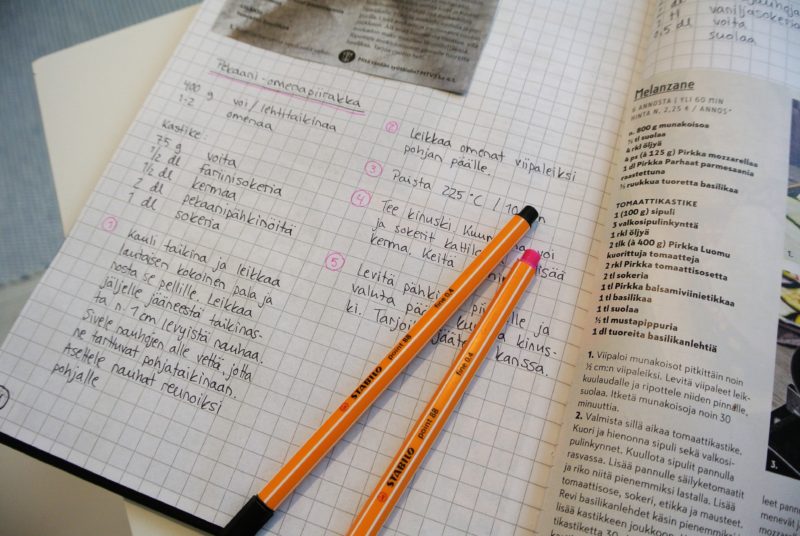 Pekaani-omenapiirakka
400 g voi/lehtitaikinaa
1-2 omenaa
Kastike:
75 g voita
1/2 dl fariinisokeria
1/2 dl kermaa
2 dl pekaanipähkinöitä
1 dl sokeria
1 Kauli taikina ja leikkaa
lautasen kokoinen pala ja
nosta se pellille. Leikkaa
jäljelle jääneestä taikinas-
ta n. 1 cm levyistä nauhaa.
Sivele nauhojen alle vettä, jotta
ne tarttuvat pohjataikinaan.
Asettele nauhat reunoiksi
pohjalle
2 Leikkaa omenat viipaleiksi
pohjan päälle.
3 Paista 225 °C /
4 Tee kinuski.
ja sokerit
kerma. Keitä
5 Levitä
valuta
ki.
kanssa.
STABILO point 88 fine 0.4
STABILO point 88 fine 0.4
vaniljasokeria
voita
0,5 dl suolaa
Melanzane
ANNOSTA | YLI 60 MIN
HINTA N. 2,25 € / ANNOS*
n. 800 g munakoisoa
tl suolaa
rkl öljyä
ps (à 125 g) Pirkka mozzarellaa
1 dl Pirkka Parhaat parmesaania
raastettuna
½ ruukkua tuoretta basilikaa
TOMAATTIKASTIKE
1 (100 g) sipuli
3 valkosipulinkynttä
1 rkl öljyä
2 tlk (à 400 g) Pirkka Luomu
kuorittuja tomaatteja
2 rkl Pirkka tomaattisosetta
2 tl sokeria
1 tl Pirkka Balsamiviinietikkaa
1 tl basilikaa
1 tl suolaa
½ tl mustapippuria
1 dl tuoreita basilikanlehtiä
1. Viipaloi munakoisot pitkittäin noin
½ cm:n viipaleiksi. Levitä viipaleet leik-
kuulaudalle ja ripottele niiden pinnalle
suolaa. Itketä munakoisoja noin 30
minuuttia.
2. Valmista sillä aikaa tomaattikastike.
Kuori ja hienonna sipuli sekä valkosi-
pulinkynnet. Kuullota sipulit pannulla
rasvassa. Lisää pannulle säilyketomaatit
ja riko niitä pienemmiksi lastalla. Lisää
tomaattisose, sokeri, etikka ja mausteet.
Revi basilikanlehdet käsin pienemmiksi
lisää kastikkeen joukkoon.
kastiketta 30
1.
3.
leet pann
menevät j
mozzarel